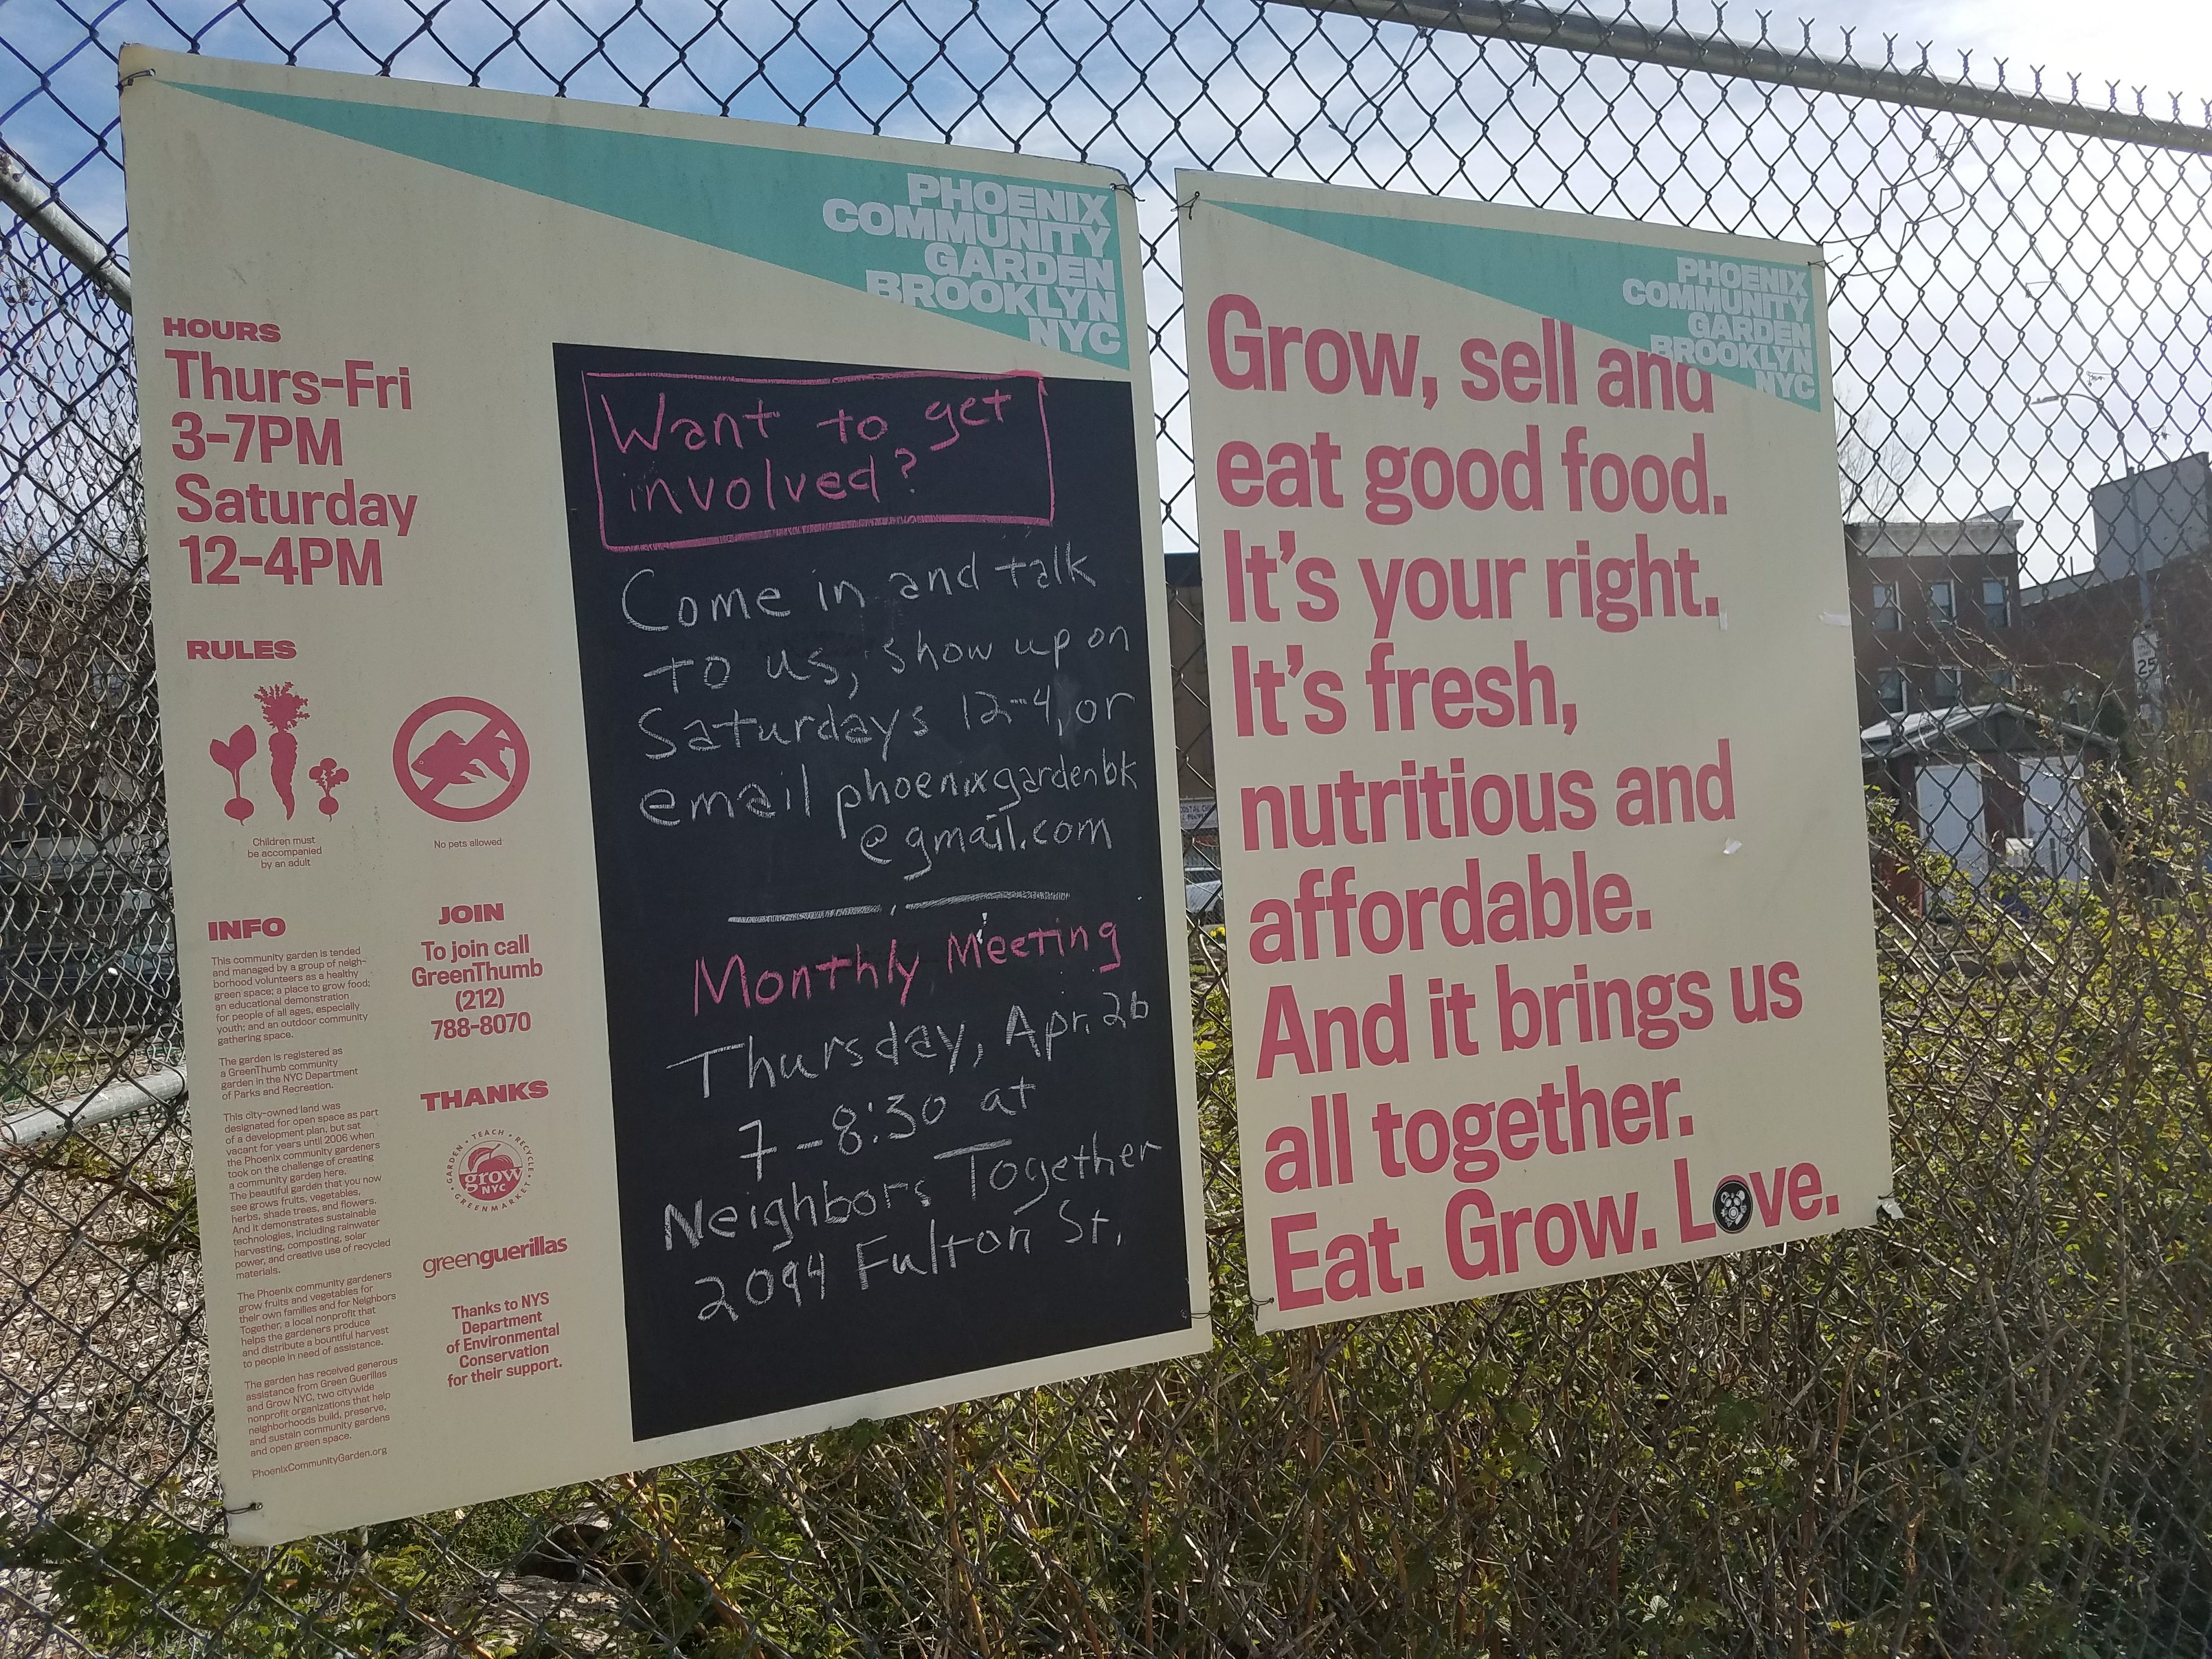 PHOENIX
COMMUNITY
GARDEN
BROOKLYN
NYC
HOURS
Thurs-Fri
3-7PM
Saturday
12-4PM
RULES
Children must
be accompanied
by an adult
No pets allowed
INFO
This community garden is tended
and managed by a group of neigh-
borhood volunteers as a healthy
green space; a place to grow food;
an educational demonstration
for people of all ages, especially
youth; and an outdoor community
gathering space.
The garden is registered as
a GreenThumb community
garden in the NYC Department
of Parks and Recreation.
This city-owned land was
designated for open space as part
of a development plan, but sat
vacant for years until 2006 when
the Phoenix community gardeners
took on the challenge of creating
a community garden here.
The beautiful garden that you now
see grows fruits, vegetables,
herbs, shade trees, and flowers.
And it demonstrates sustainable
technologies, including rainwater
harvesting, composting, solar
power, and creative use of recycled
materials.
The Phoenix community gardeners
grow fruits and vegetables for
their own families and for Neighbors
Together, a local nonprofit that
helps the gardeners produce
and distribute a bountiful harvest
to people in need of assistance.
The garden has received generous
assistance from Green Guerillas
and Grow NYC, two citywide
nonprofit organizations that help
neighborhoods build, preserve,
and sustain community gardens
and open green space.
PhoenixCommunityGarden.org
JOIN
To join call
GreenThumb
(212)
788-8070
THANKS
GARDEN • TEACH • RECYCLE • GREENMARKET
grow
NYC
greenguerillas
Thanks to NYS
Department
of Environmental
Conservation
for their support.
Want to get
involved?
Come in and talk
to us, show up on
Saturdays 12-4, or
email phoenixgardenbk
@gmail.com
Monthly Meeting
Thursday, Apr. 26
7-8:30 at
Neighbors Together
2094 Fulton St.
PHOENIX
COMMUNITY
GARDEN
BROOKLYN
NYC
Grow, sell and
eat good food.
It's your right.
It's fresh,
nutritious and
affordable.
And it brings us
all together.
Eat. Grow. Love.
25